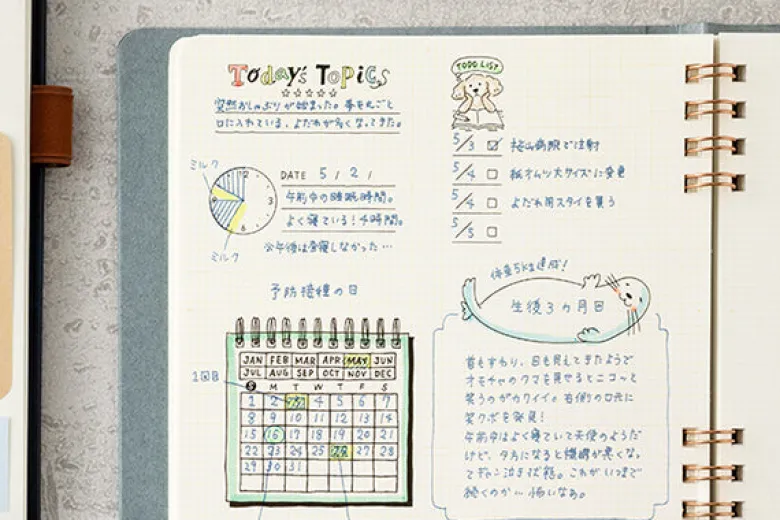 Today's Topics
突然おしゃぶりが始まった。手を丸ごと
口に入れている。よだれが多くなってきた。
ミルク
12
3
6
9
ミルク
DATE 5 / 2 /
午前中の睡眠時間。
よく寝ている！4時間。
公午後は昼寝しなかった…
TODO LIST
5/3 桜山病院で注射
5/4 紙オムツ大サイズに変更
5/4 よだれ用スタイを買う
5/5
予防接種の日
1回目
JAN FEB MAR APR MAY JUN
JUL AUG SEP OCT NOV DEC
S M T W T F S
1 2 3 4 5 6 7
8 9 10 11 12 13 14
15 16 17 18 19 20 21
22 23 24 25 26 27 28
29 30 31
体重5kg達成！
生後3ヵ月目
首もすわり、目も見えてきたようで
オモチャのクマを見せるとニコって
笑うのがカワイイ。右側の口元に
笑クボを発見！
午前中はよく寝ていて天使のようだ
けど、夕方になると機嫌が悪くなっ
てギャン泣き状態。これがいつまで
続くのか…怖いなぁ。